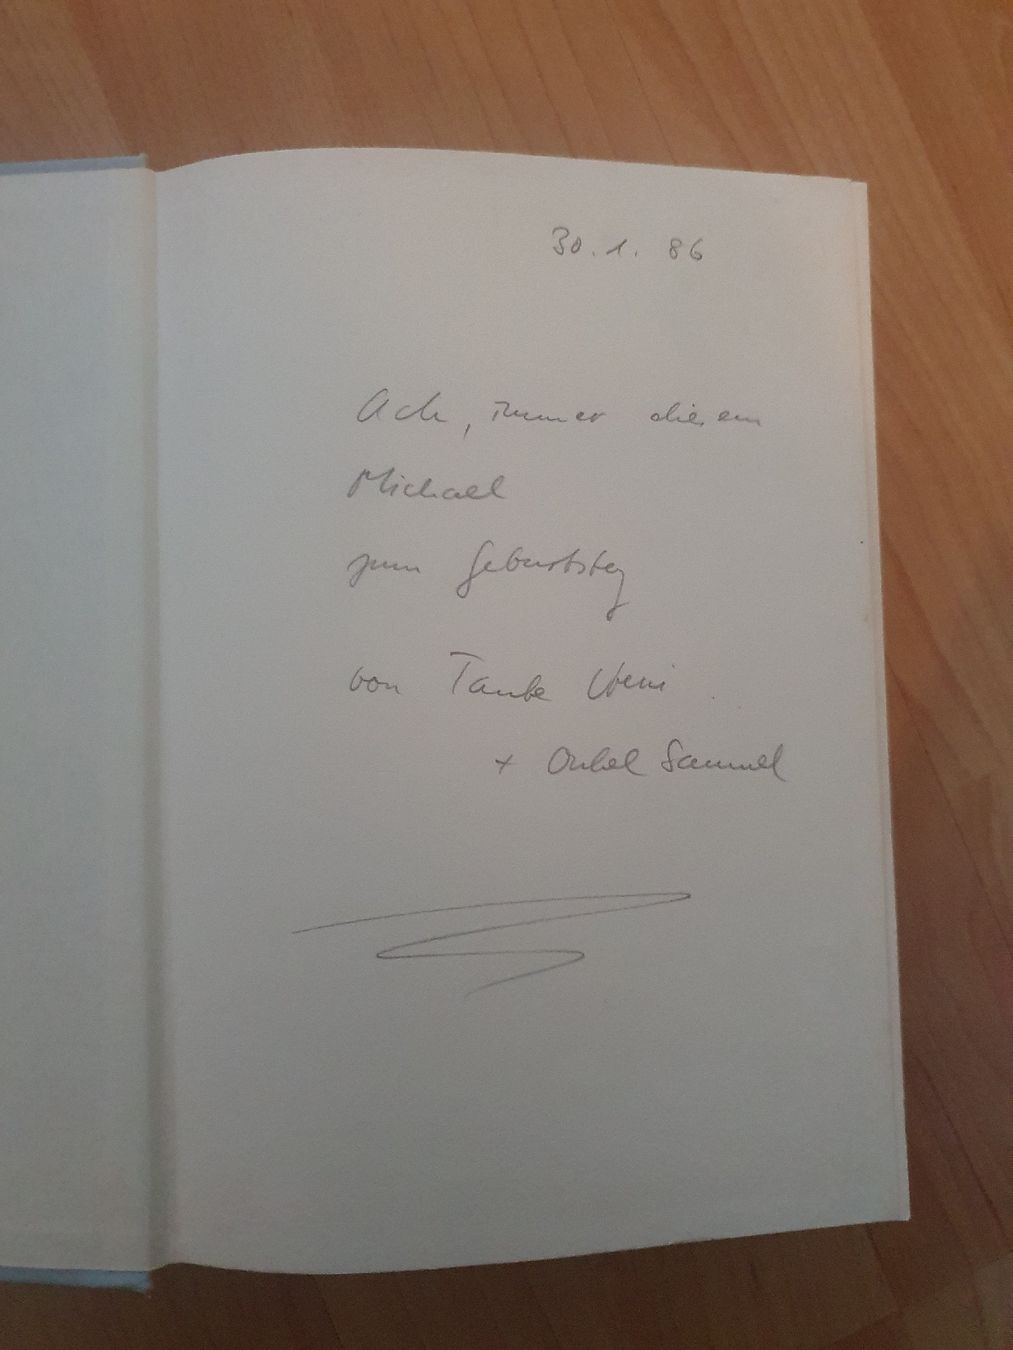 30.1.86
Ach, immer diesem
Michael
zum Geburtstag
von Tante
+ Onkel Samuel